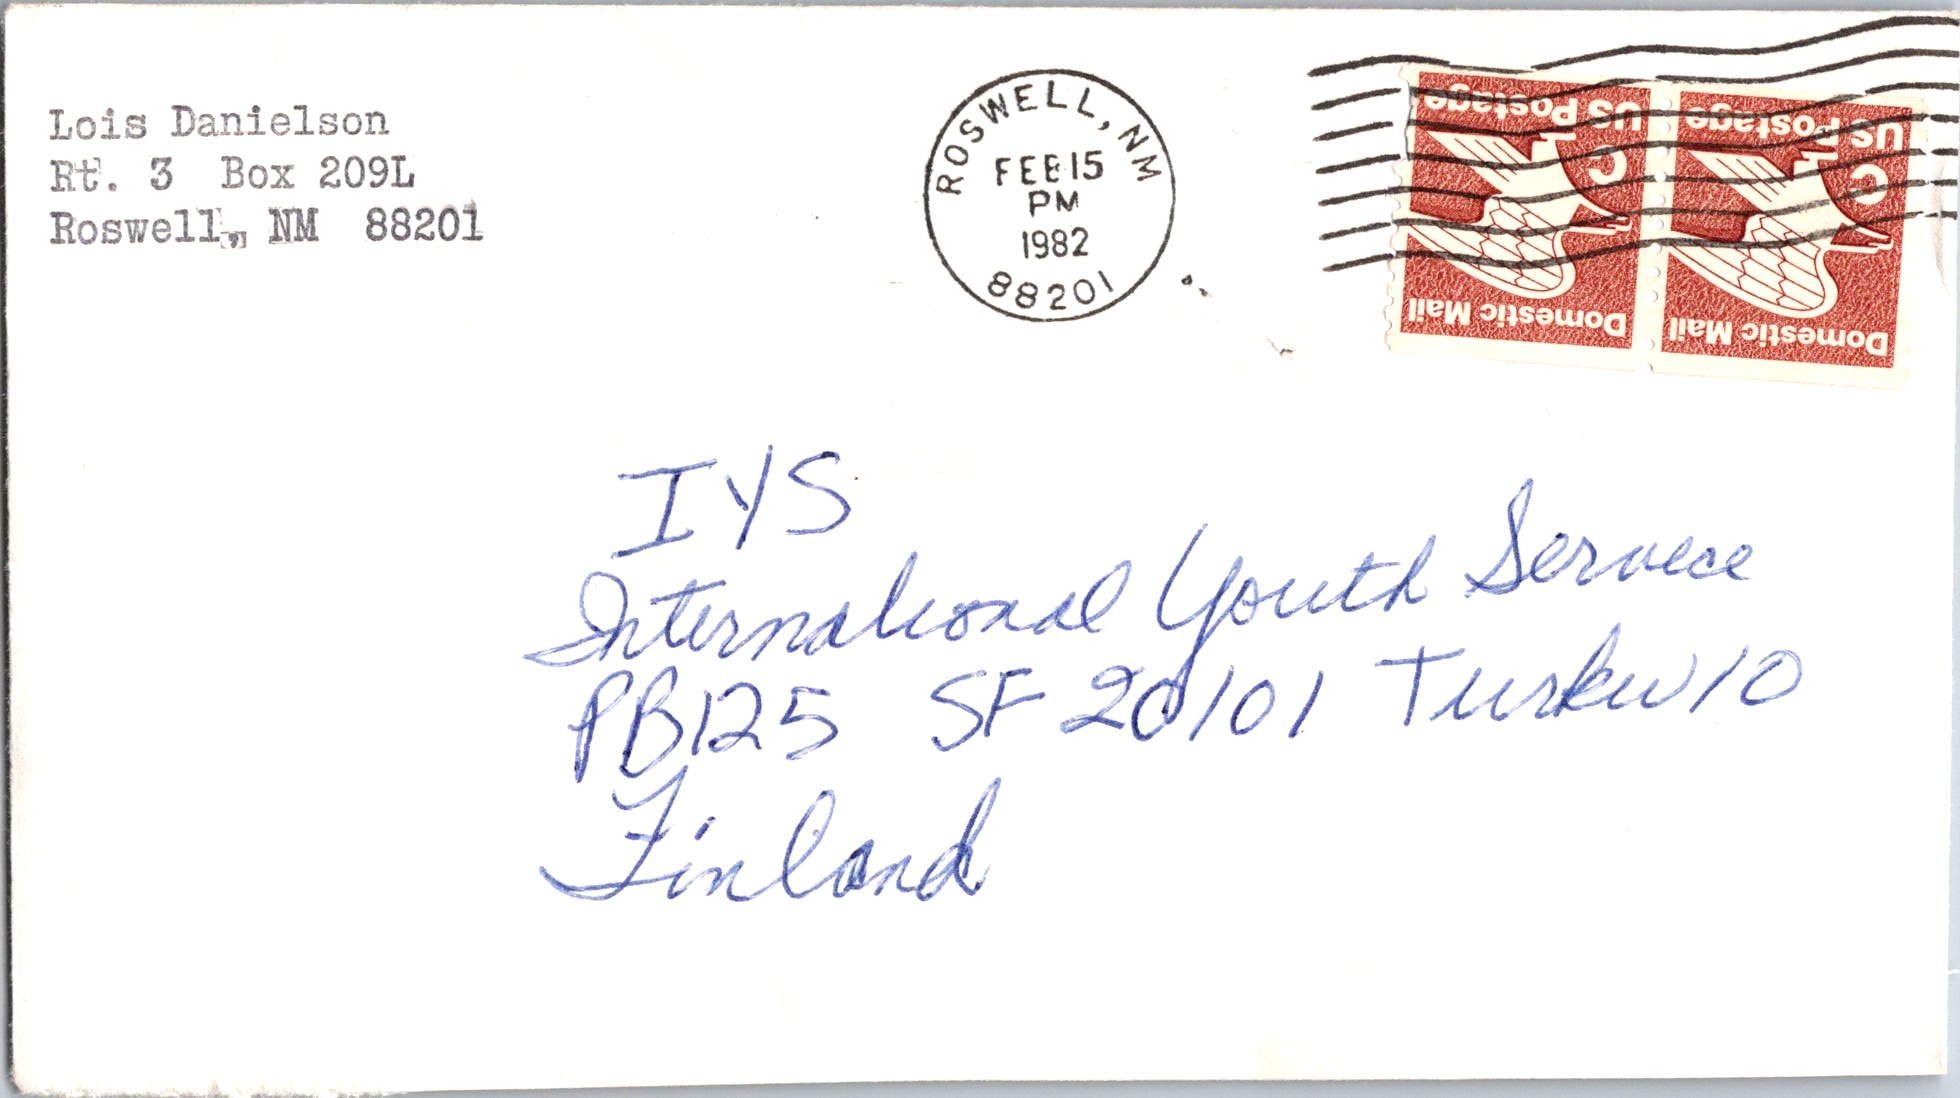 Lois Danielson
Rt. 3 Box 209L
Roswell, NM 88201
ROSWELL, NM
FEB 15
PM
1982
88201
US Postage
C
Domestic Mail
US Postage
C
Domestic Mail
IYS
International Youth Service
PB125 SF 20101 Turku 10
Finland